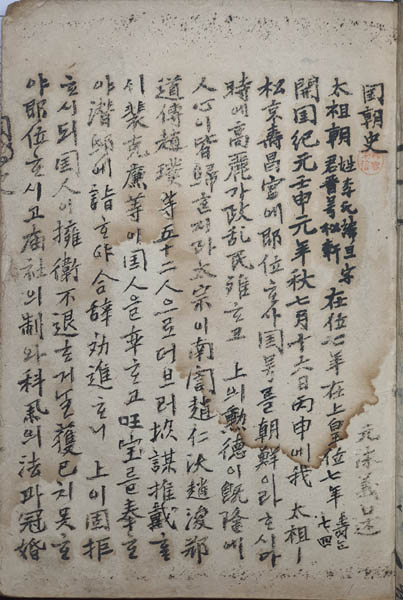 囯朝史
元泳義口述
太祖朝 姓李元諱旦字君晋号松軒 在位七年在上皇位七年 壽七四
開囯紀元壬申元年秋七月十六日丙申에我 太祖ㅣ
松京壽昌宮에卽位ᄒᆞ사囯号를朝鮮이라ᄒᆞ시다
時에高麗가政乱民離ᄒᆞ고 上의勲德이旣隆에
人心이皆歸ᄒᆞᆫ지라太宗이南誾趙仁沃趙浚鄭
道傳趙璞等五十二人으로더브러謀推戴ᄒᆞ
시裴克廉等이囯人을率ᄒᆞ고 宝를奉ᄒᆞ
야潜邸에詣ᄒᆞ야合辞勧進ᄒᆞ니 上이固拒
ᄒᆞ시되囯人이擁衛不退ᄒᆞ거늘獲已치못ᄒᆞ
야卽位ᄒᆞ시고廟社의制와科의法과冠婚